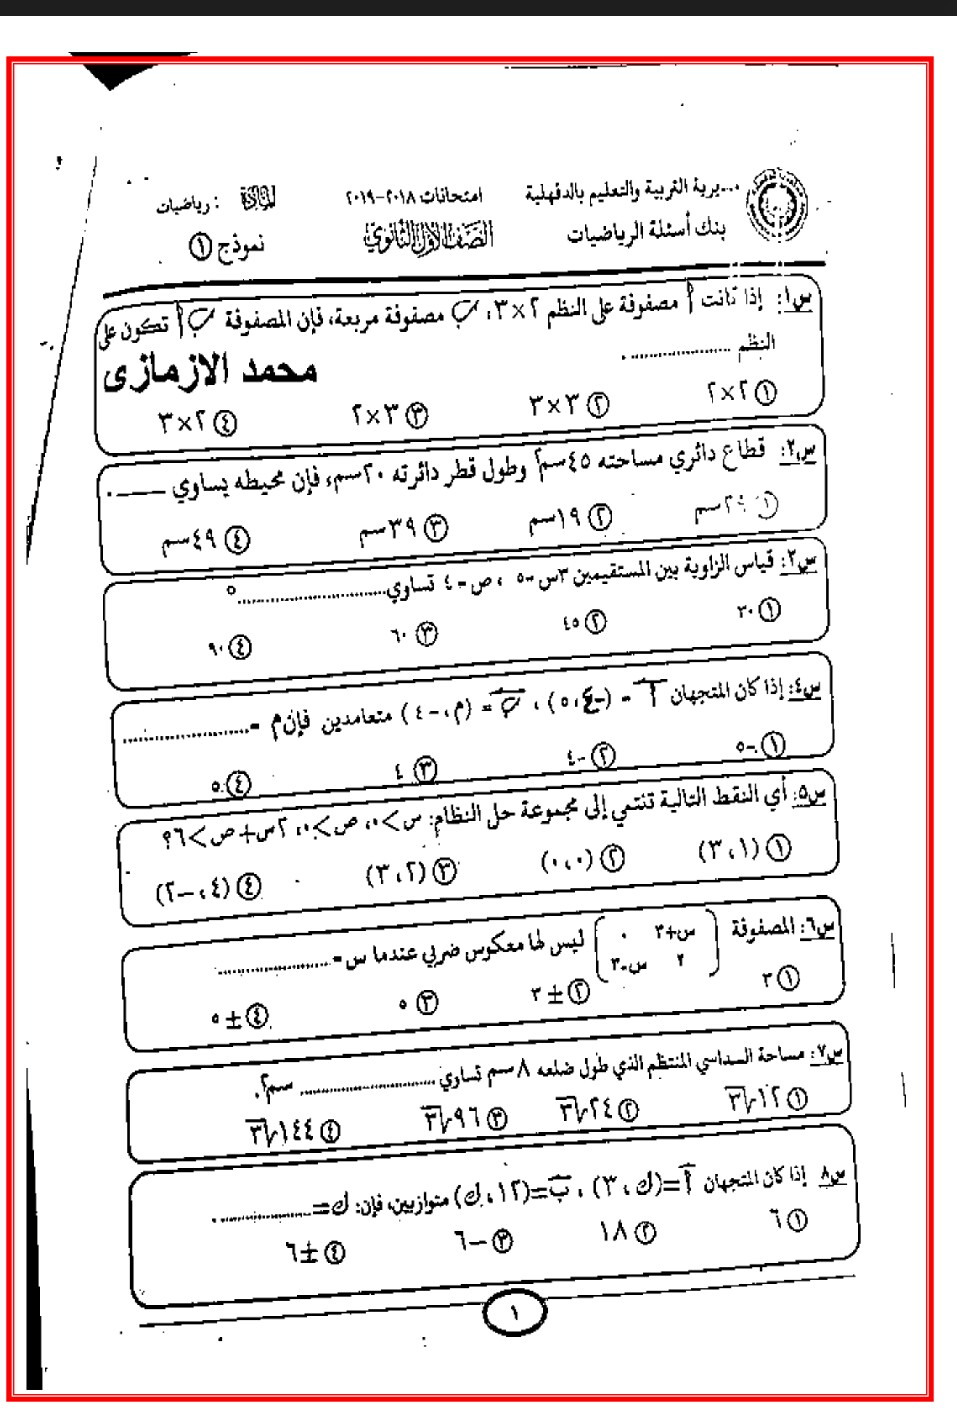 مديرية التربية والتعليم بالدقهلية
امتحانات ٢٠١٨-٢٠١٩
المادة : رياضيات
بنك أسئلة الرياضيات
الصف الأول الثانوي
نموذج ①
س١: إذا كانت أ مصفوفة على النظم ٢×٣، ب مصفوفة مربعة، فإن المصفوفة أ ب تكون على
النظم ................... .
محمد الازمازى
① ٢×٢ ② ٣×٣ ③ ٣×٢ ④ ٢×٣
س٢: قطاع دائري مساحته ٤٥سم٢ وطول قطر دائرته ٢٠سم، فإن محيطه يساوي ____ .
① ٢٩سم ② ١٩سم ③ ٣٩سم ④ ٤٩سم
س٣: قياس الزاوية بين المستقيمين ٣س=٥ ، ص=٤ تساوي..............................°
① ٣٠ ② ٤٥ ③ ٦٠ ④ ٩٠
س٤: إذا كان المتجهان أ = (-٤، ٥) ، ب = (م، -٤) متعامدين فإن م =..............................
① -٥ ② -٤ ③ ٤ ④ ٥
س٥: أي النقط التالية تنتمي إلى مجموعة حل النظام: س>٠، ص>٠، ٢س+ص>٦؟
① (١، ٣) ② (٠، ٠) ③ (٢، ٣) ④ (٤، -٢)
س٦: المصفوفة ( س+٣ ٠ ليس لها معكوس ضربي عندما س =.........................
٢ س-٣ )
① ٣ ② ±٣ ③ ٥ ④ ±٥
س٧: مساحة السداسي المنتظم الذي طول ضلعه ٨سم تساوي ........................... سم٢.
① ١٢√٣ ② ٢٤√٣ ③ ٩٦√٣ ④ ١٤٤√٣
س٨ إذا كان المتجهان أ=(ك، ٣) ، ب=(١٢، ك) متوازيين، فإن: ك=.................... .
① ٦ ② ١٨ ③ -٦ ④ ±٦
١